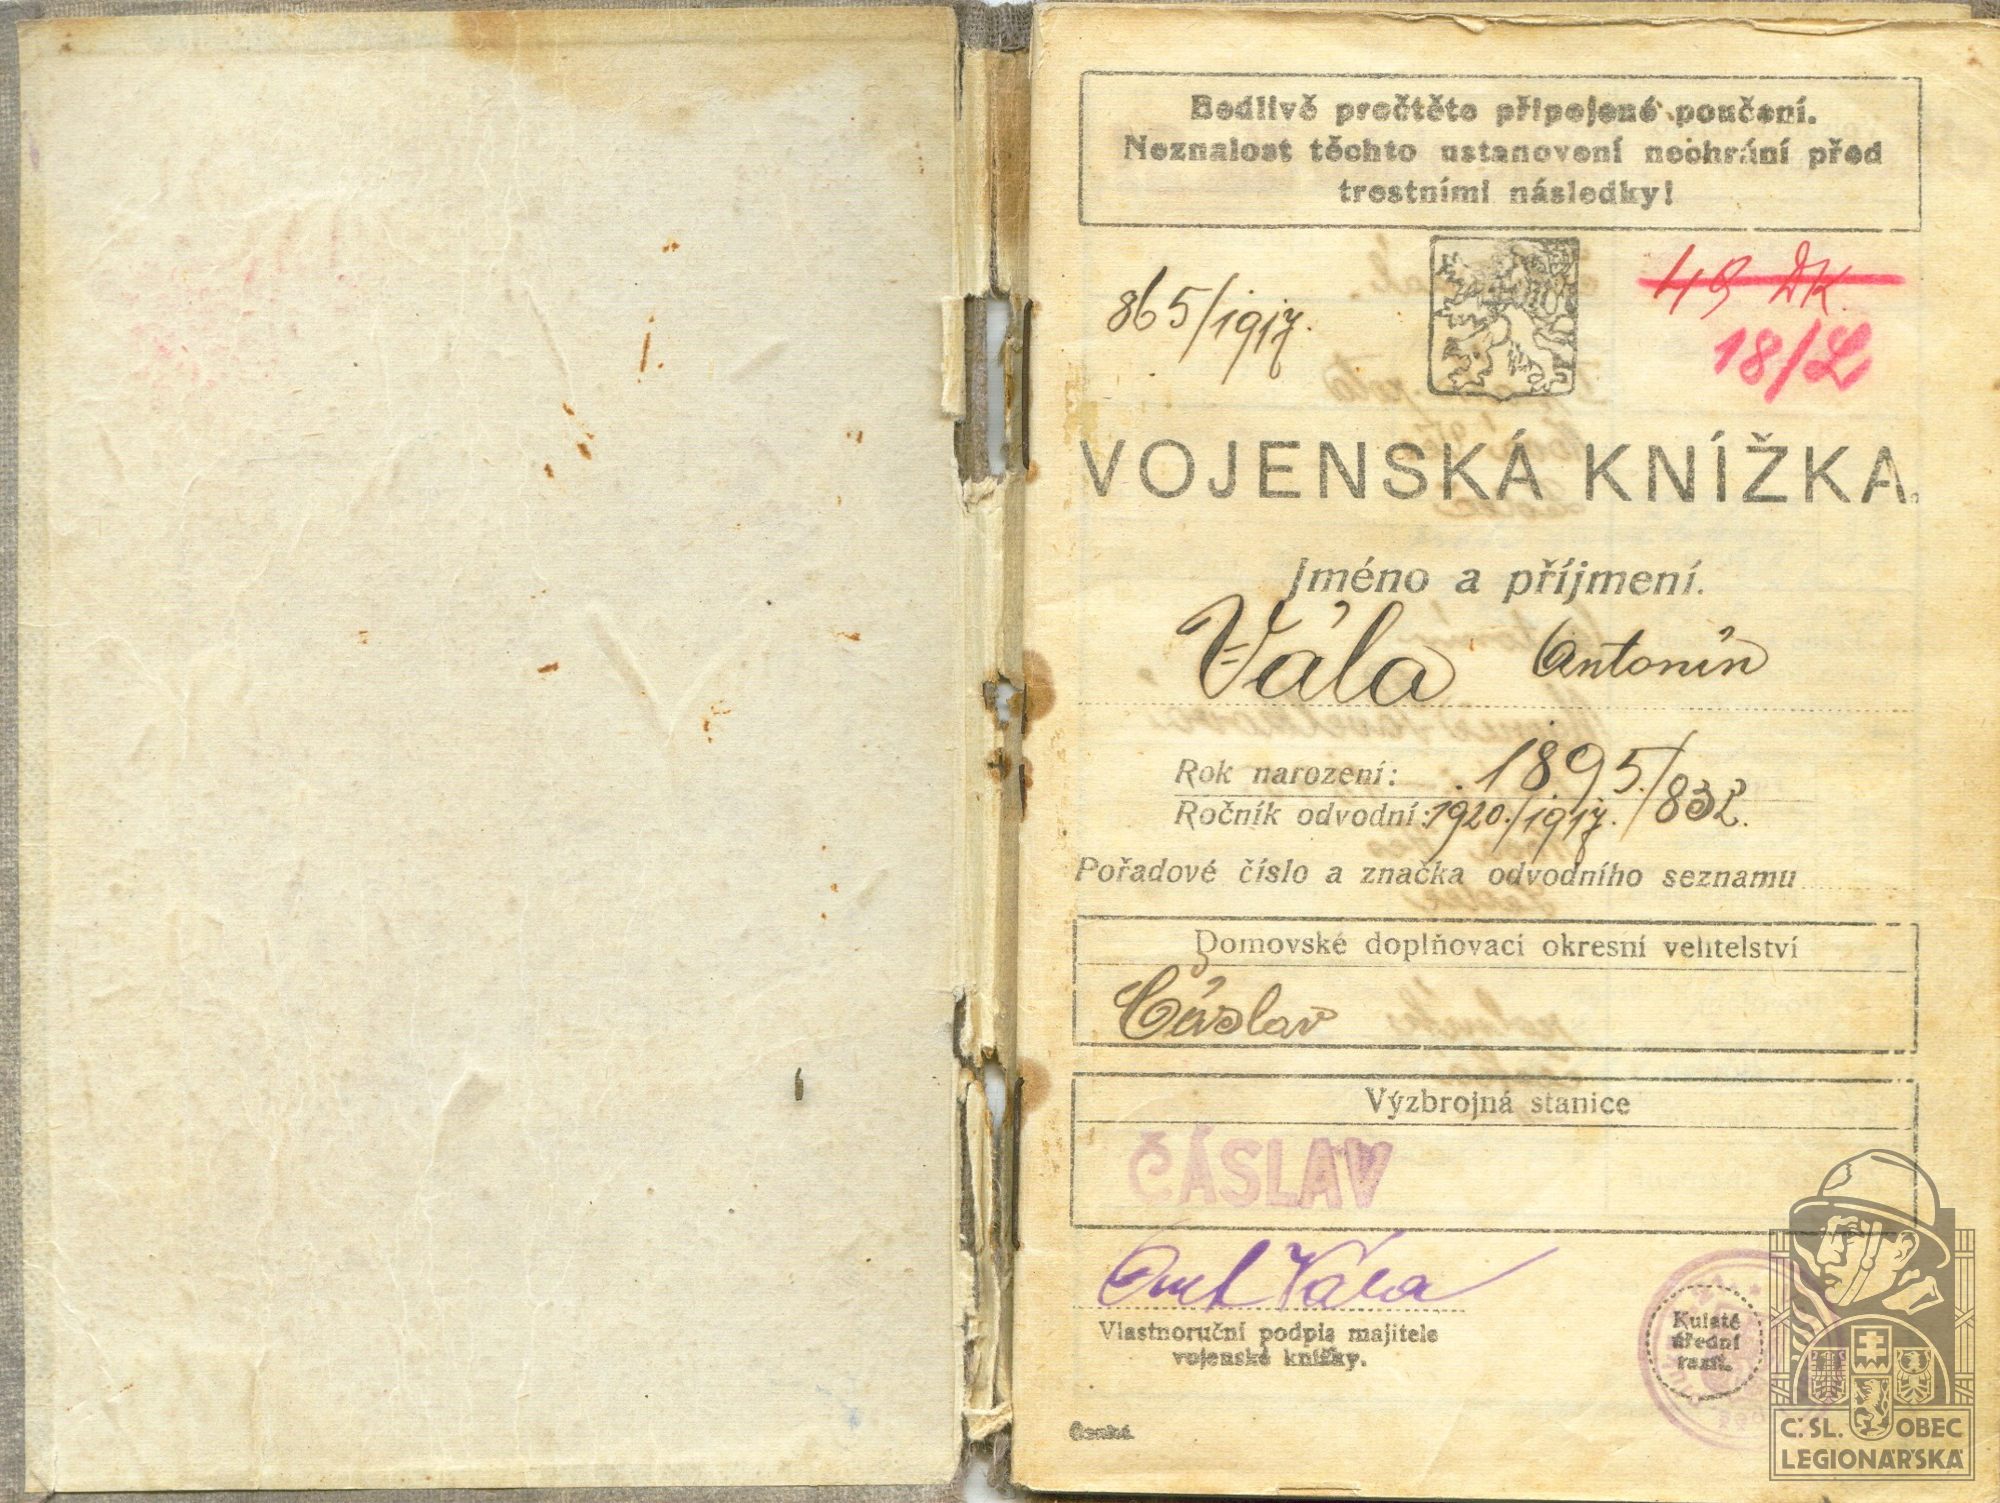 Bedlivě pročtěte připojené poučení.
Neznalost těchto ustanovení neohrání před
trestními následky!
865/1917.
49 DK.
18/L
VOJENSKÁ KNÍŽKA.
Jméno a příjmení.
Vála Antonín
Rok narození: 1895.
Ročník odvodní: 1920./1917./832.
Pořadové číslo a značka odvodního seznamu
Domovské doplňovací okresní velitelství
Čáslav
Výzbrojná stanice
ČÁSLAV
Ant Vála
Vlastnoruční podpis majitele
vojenské knížky.
Kulaté
úřední
razít.
Česká
Č.SL. OBEC
LEGIONÁŘSKÁ